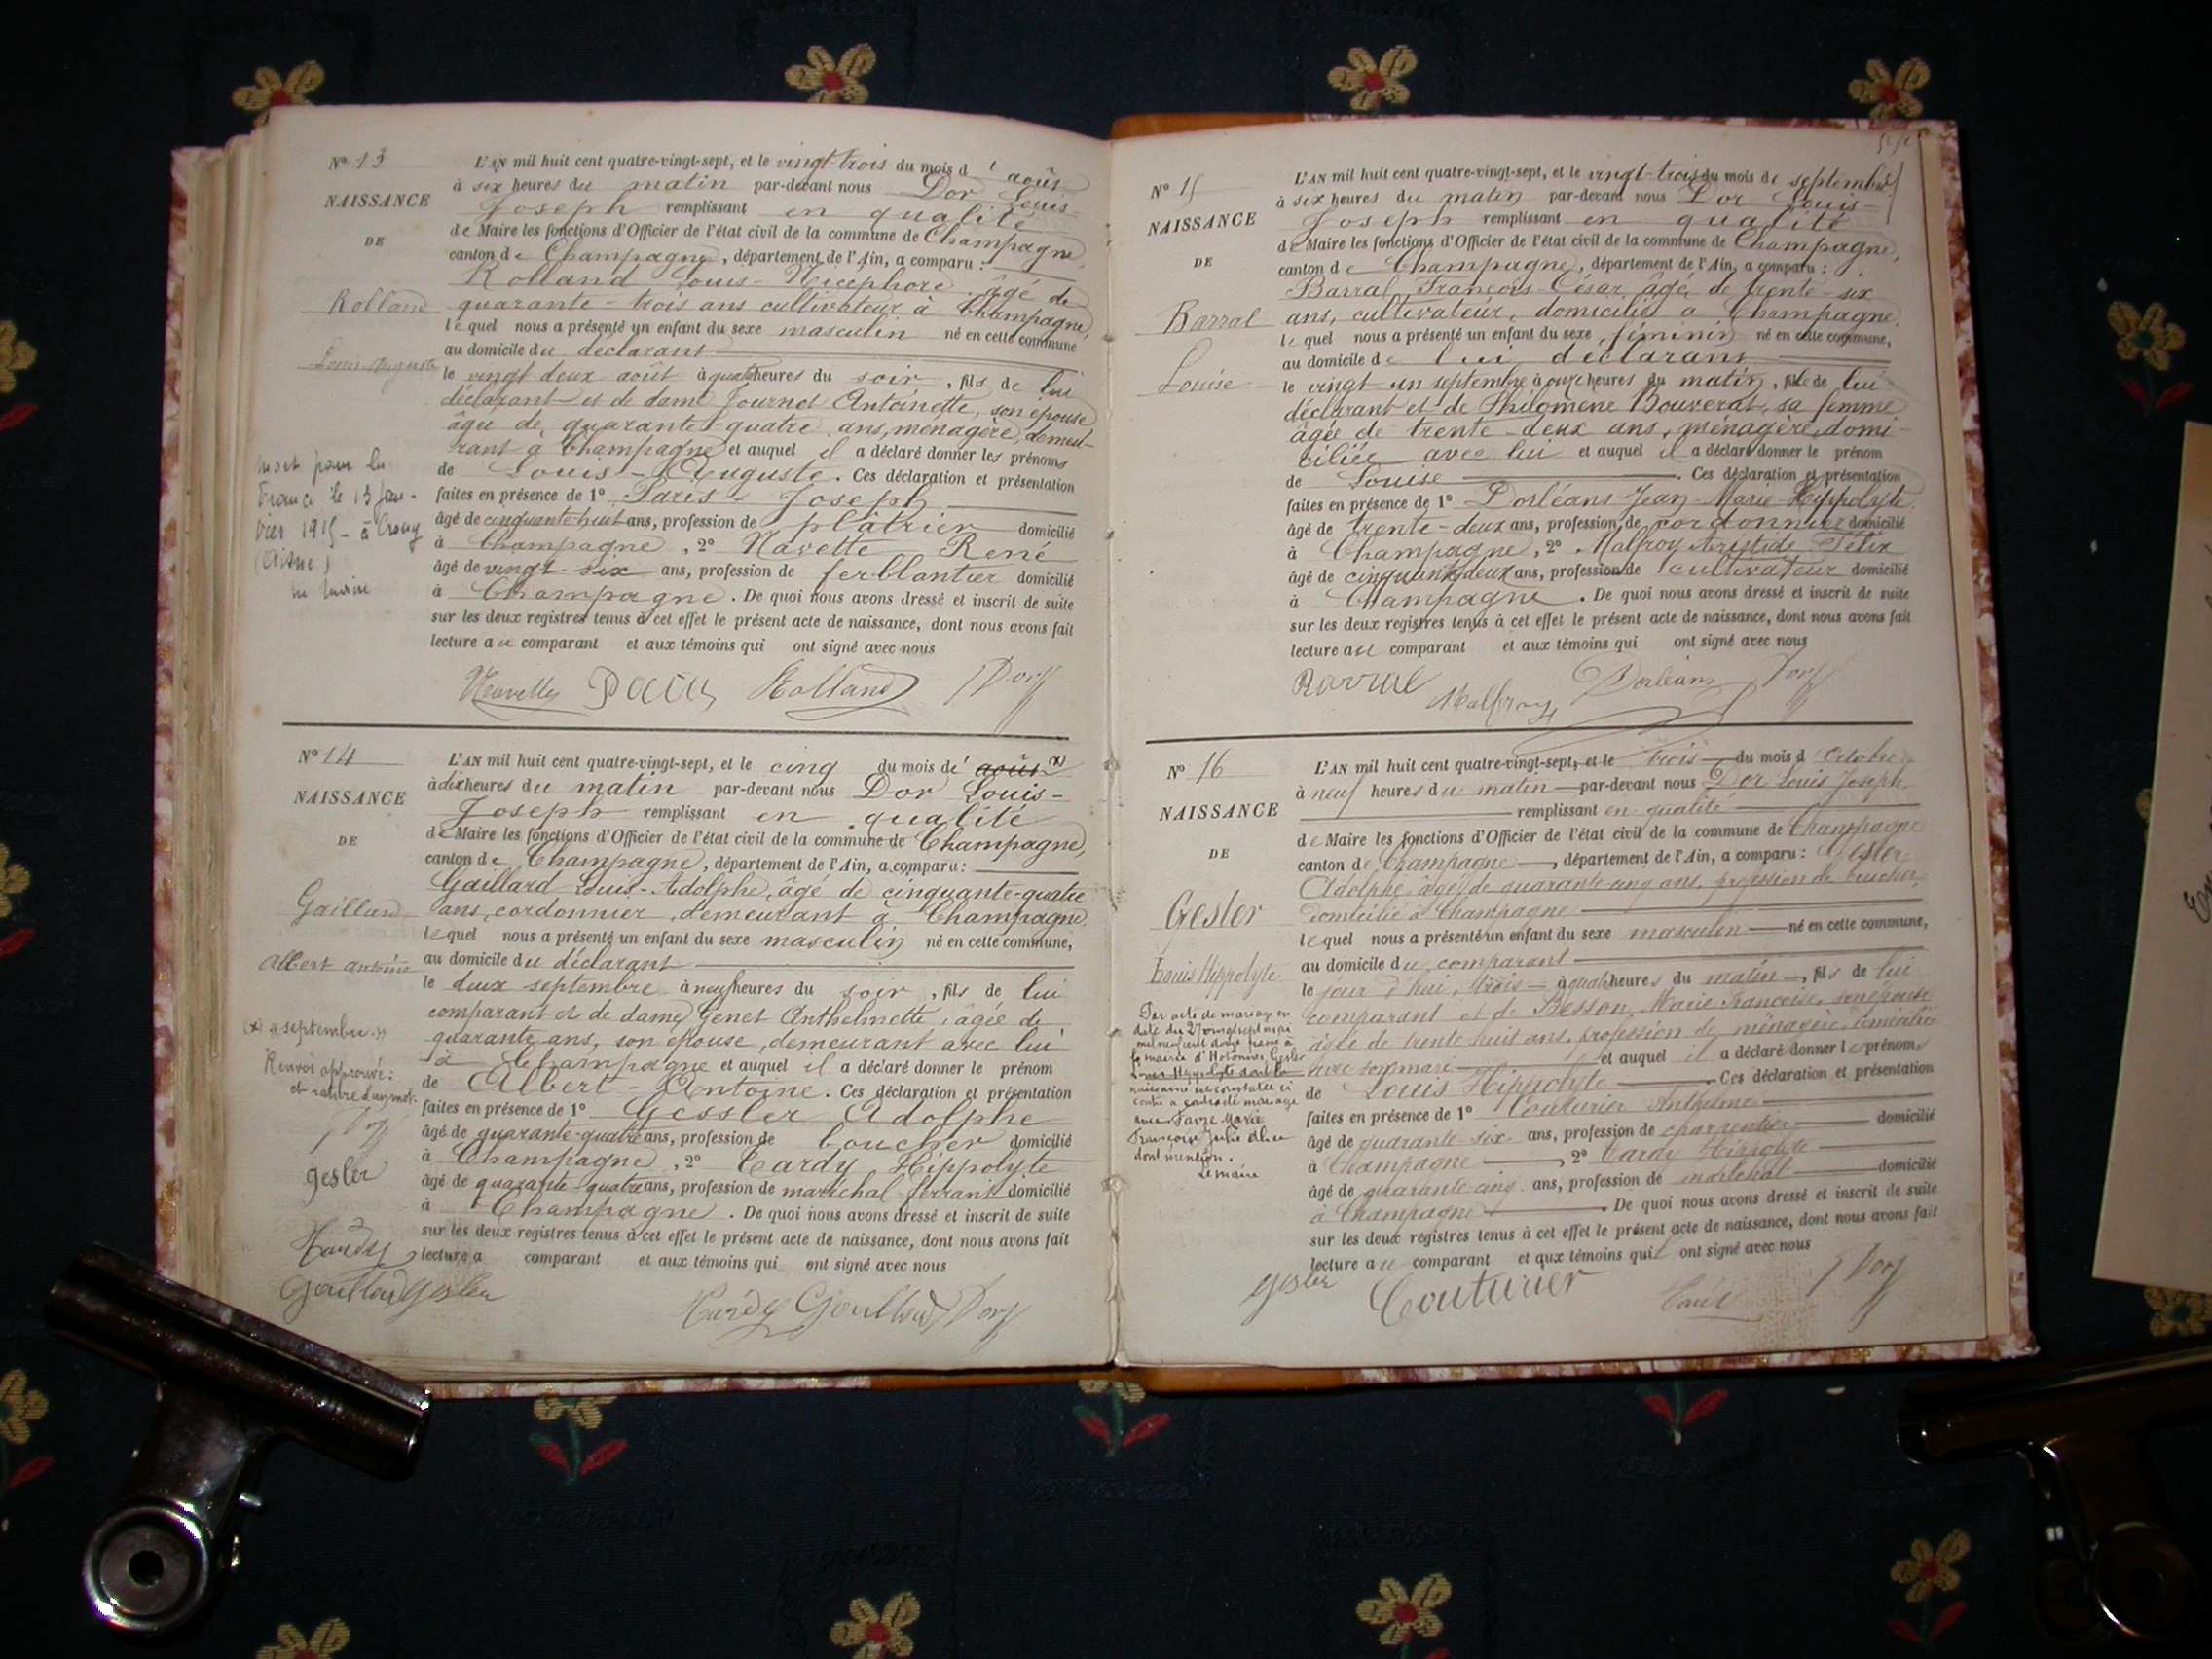 Nº 13
NAISSANCE
DE
Rolland
Louis Auguste
mort pour la
France le 13 jan-
vier 1915 - à Crouy
(Aisne)
L'AN mil huit cent quatre-vingt-sept, et le vingt-trois du mois d'août
à six heures du matin par-devant nous Dor Louis-
Joseph remplissant en qualité
de Maire les fonctions d'Officier de l'état civil de la commune de Champagne,
canton de Champagne, département de l'Ain, a comparu :
Rolland Louis-Nicephore, âgé de
quarante-trois ans cultivateur à Champagne,
lequel nous a présenté un enfant du sexe masculin né en cette commune
au domicile du déclarant
le vingt deux août à quatre heures du soir, fils de lui
déclarant et de dame Journet Antoinette, son épouse
âgée de quarante-quatre ans, ménagère, demeu-
rant à Champagne et auquel il a déclaré donner les prénoms
de Louis-Auguste. Ces déclaration et présentation
faites en présence de 1º Paris Joseph
âgé de cinquante-huit ans, profession de plâtrier domicilié
à Champagne, 2º Navette René
âgé de vingt-six ans, profession de ferblantier domicilié
à Champagne. De quoi nous avons dressé et inscrit de suite
sur les deux registres tenus à cet effet le présent acte de naissance, dont nous avons fait
lecture au comparant et aux témoins qui ont signé avec nous
Rolland Dor
Nº 14
NAISSANCE
DE
Gaillard
Albert Antoine
(x) "septembre"
Renvoi approuvé:
et rature d'un mot.
Dor
gesler
Hardy
Gaillard gesler
L'AN mil huit cent quatre-vingt-sept, et le cinq du mois de août (x)
à dix heures du matin par-devant nous Dor Louis-
Joseph remplissant en qualité
de Maire les fonctions d'Officier de l'état civil de la commune de Champagne,
canton de Champagne, département de l'Ain, a comparu :
Gaillard Louis-Adolphe, âgé de cinquante-quatre
ans, cordonnier, demeurant à Champagne,
lequel nous a présenté un enfant du sexe masculin né en cette commune,
au domicile du déclarant
le deux septembre à neuf heures du soir, fils de lui
comparant et de dame Genet Anthelmette, âgée de
quarante ans, son épouse, demeurant avec lui
à Champagne et auquel il a déclaré donner le prénom
de Albert-Antoine. Ces déclaration et présentation
faites en présence de 1º Gessler Adolphe
âgé de quarante-quatre ans, profession de boucher domicilié
à Champagne, 2º Cardy Hippolyte
âgé de quarante-quatre ans, profession de maréchal ferrant domicilié
à Champagne. De quoi nous avons dressé et inscrit de suite
sur les deux registres tenus à cet effet le présent acte de naissance, dont nous avons fait
lecture a comparant et aux témoins qui ont signé avec nous
Gaillard Dor
Nº 15
NAISSANCE
DE
Barral
Louise
L'AN mil huit cent quatre-vingt-sept, et le vingt-trois du mois de septembre
à six heures du matin par-devant nous Dor Louis-
Joseph remplissant en qualité
de Maire les fonctions d'Officier de l'état civil de la commune de Champagne,
canton de Champagne, département de l'Ain, a comparu :
Barral François-César, âgé de trente-six
ans, cultivateur, domicilié à Champagne,
lequel nous a présenté un enfant du sexe féminin né en cette commune,
au domicile de lui déclarant
le vingt-un septembre à onze heures du matin, fille de lui
déclarant et de Philomène Bouverat, sa femme
âgée de trente-deux ans, ménagère, domi-
ciliée avec lui et auquel il a déclaré donner le prénom
de Louise. Ces déclaration et présentation
faites en présence de 1º Dorléans Jean-Marie-Hippolyte
âgé de trente-deux ans, profession de cordonnier domicilié
à Champagne, 2º Malfroy Aristide Félix
âgé de cinquante-deux ans, profession de cultivateur domicilié
à Champagne. De quoi nous avons dressé et inscrit de suite
sur les deux registres tenus à cet effet le présent acte de naissance, dont nous avons fait
lecture au comparant et aux témoins qui ont signé avec nous
Barral Malfroy Dorléans Dor
Nº 16
NAISSANCE
DE
Gesler
Louis Hippolyte
Par acte de mariage en
date du 27 vingt sept mai
mil neuf cent douze passé à
la mairie d'Hotonnes, Gesler
Louis Hippolyte dont la
naissance est constatée ci
contre a contracté mariage
avec Favre Marie
Françoise Julie Alice
dont mention.
Le maire
L'AN mil huit cent quatre-vingt-sept, et le trois du mois d'Octobre
à neuf heures du matin par-devant nous Dor Louis Joseph
remplissant en qualité
de Maire les fonctions d'Officier de l'état civil de la commune de Champagne
canton de Champagne, département de l'Ain, a comparu : Gesler
Adolphe, âgé de quarante cinq ans, profession de boucher,
domicilié à Champagne
lequel nous a présenté un enfant du sexe masculin né en cette commune,
au domicile du comparant
le jour d'hui, trois à quatre heures du matin, fils de lui
comparant et de Besson Marie Françoise, son épouse
âgée de trente huit ans, profession de ménagère, domiciliée
avec son mari et auquel il a déclaré donner les prénoms
de Louis Hippolyte Ces déclaration et présentation
faites en présence de 1º Couturier Anthelme
âgé de quarante-six ans, profession de charpentier domicilié
à Champagne, 2º Cardy Hippolyte
âgé de quarante cinq ans, profession de maréchal domicilié
à Champagne. De quoi nous avons dressé et inscrit de suite
sur les deux registres tenus à cet effet le présent acte de naissance, dont nous avons fait
lecture au comparant et aux témoins qui ont signé avec nous
gesler Couturier Dor